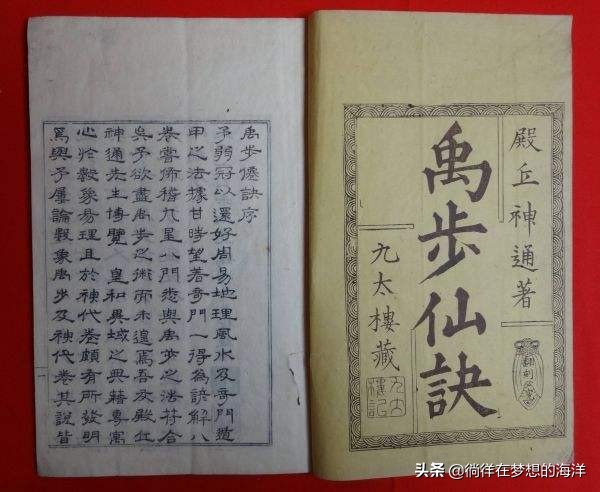 殿丘神通著
禹步仙訣
九太樓藏
九太
樓記
禹步僊訣序
予弱冠以還好周易地理風水及奇門遁
甲之法據甘時望着奇門一得為諺解八
卷嘗俻稽九星八門悉與禹步之法符合
矣予欲盡禹步之術而未遑焉吾友殿丘
神通先生博覽 皇和異域之典籍專寓
心於數象易理且於神代卷頗有所發明
焉與予屢論數象禹步及神代卷其說皆
头条 @徜徉在梦想的海洋